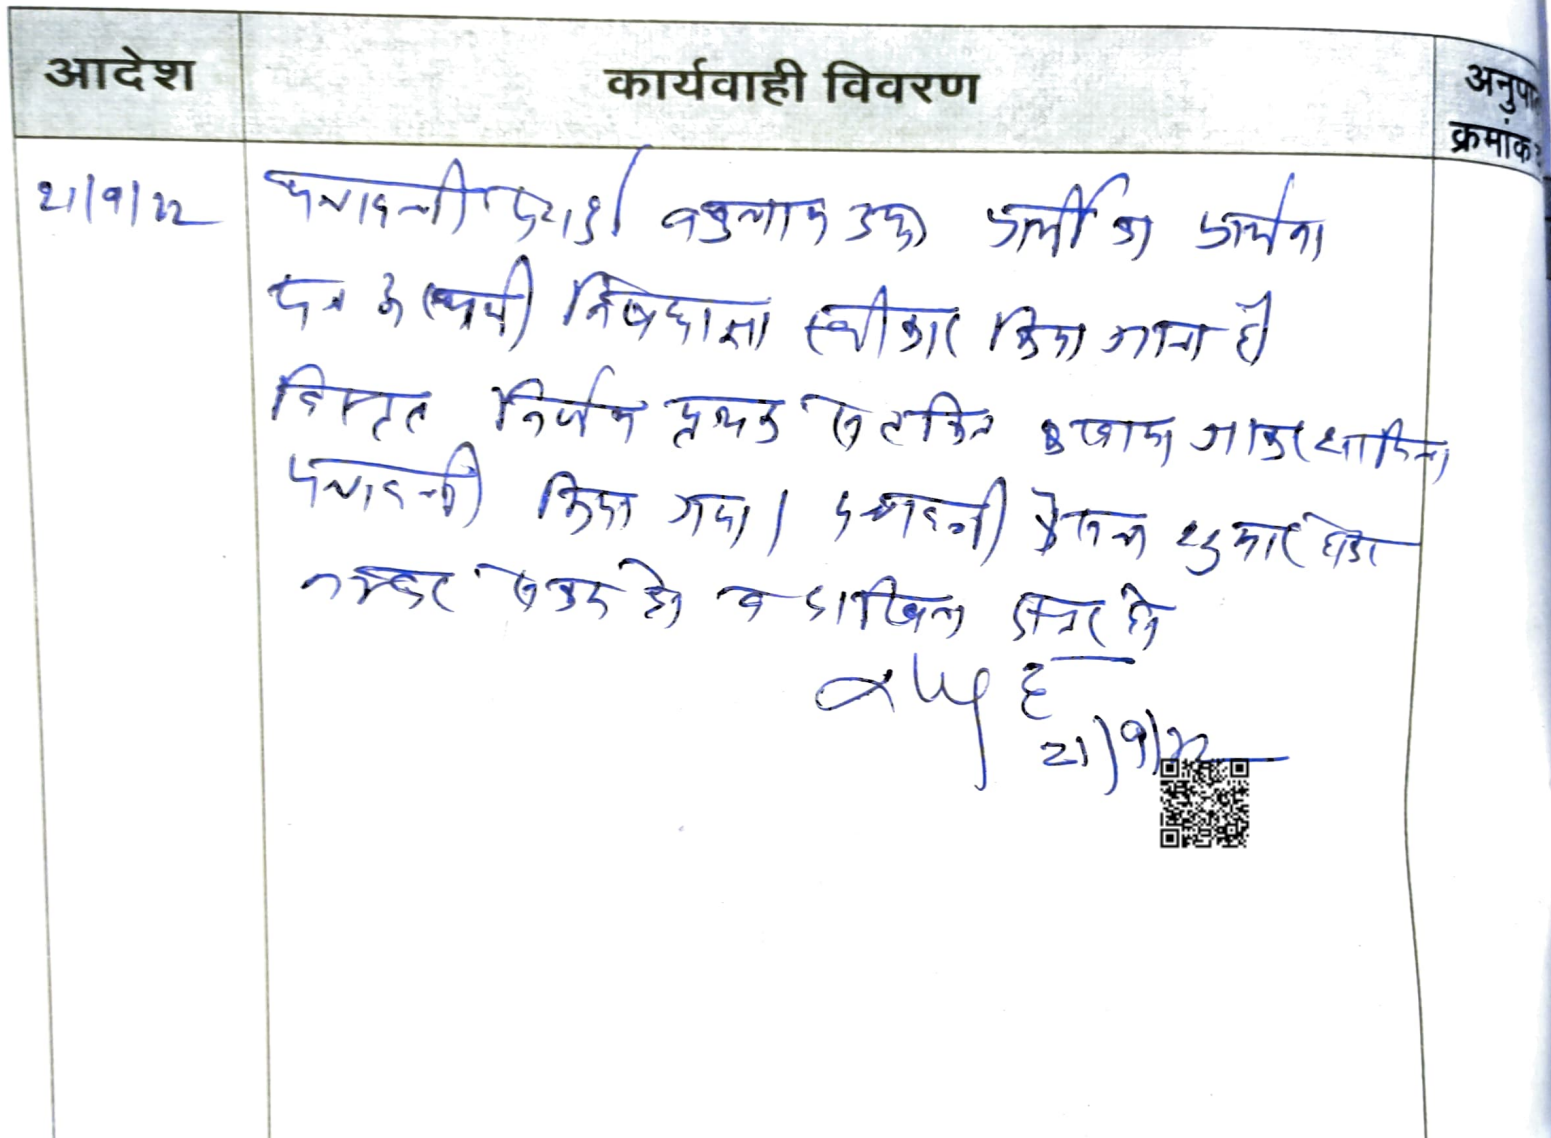 आदेश कार्यवाही विवरण अनुपा
क्रमांक
21/9/22 पत्रावली पेश हुई। वकुलाय उक्त प्रार्थी का प्रार्थना
पत्र के स्थायी निषेधाज्ञा स्वीकार किया जाता है
विस्तृत निर्णय पृथक से टंकित जाकर शामिल
पत्रावली किया गया। पत्रावली फैसल शुमार होकर
नम्बर से कम हो व दाखिल दफ्तर हो
21/9/22